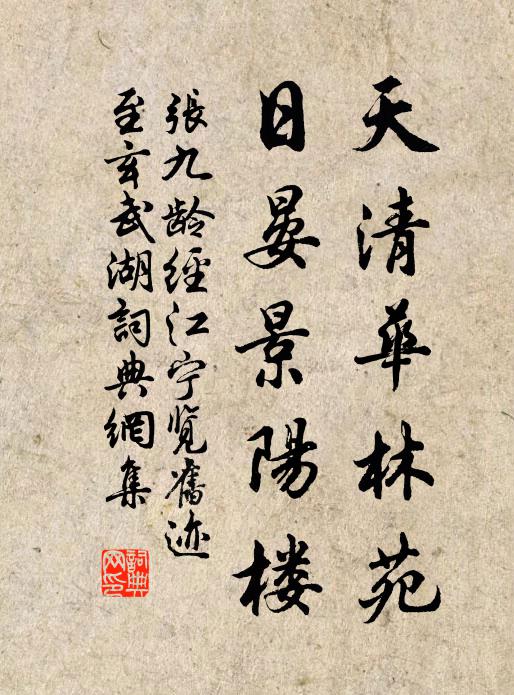 天清華林苑
日晏景陽楼
張九龄經江宁览舊迹
至玄武湖詞典網集
詞典
网印